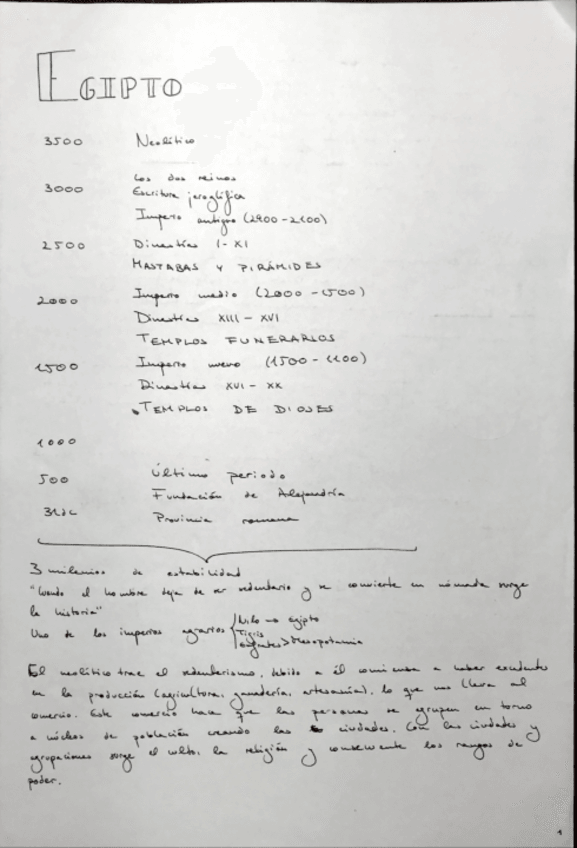 EGIPTO
3500 Neolítico
3000 Los dos reinos
Escritura jeroglífica
Imperio antiguo (2900-2100)
2500 Dinastías I-XI
MASTABAS Y PIRÁMIDES
2000 Imperio medio (2000-1500)
Dinastías XIII-XVI
TEMPLOS FUNERARIOS
1500 Imperio nuevo (1500-1100)
Dinastías XVI-XX
TEMPLOS DE DIOSES
1000
500 Último periodo
Fundación de Alejandría
31dc Provincia romana
3 milenios de estabilidad
"Cuando el hombre deja de ser sedentario y se convierte en nómada surge
la historia"
Uno de los imperios agrarios Nilo → egipto
Tigris
Eufrates > Mesopotamia
El neolítico trae el sedentarismo, debido a él comienza a haber excedente
en la producción (agricultura, ganadería, artesanía), lo que nos lleva al
comercio. Este comercio hace que las personas se agrupen en torno
a núcleos de población creando las ciudades. Con las ciudades y
agrupaciones surge el culto, la religión y consecuente los rangos de
poder.
1